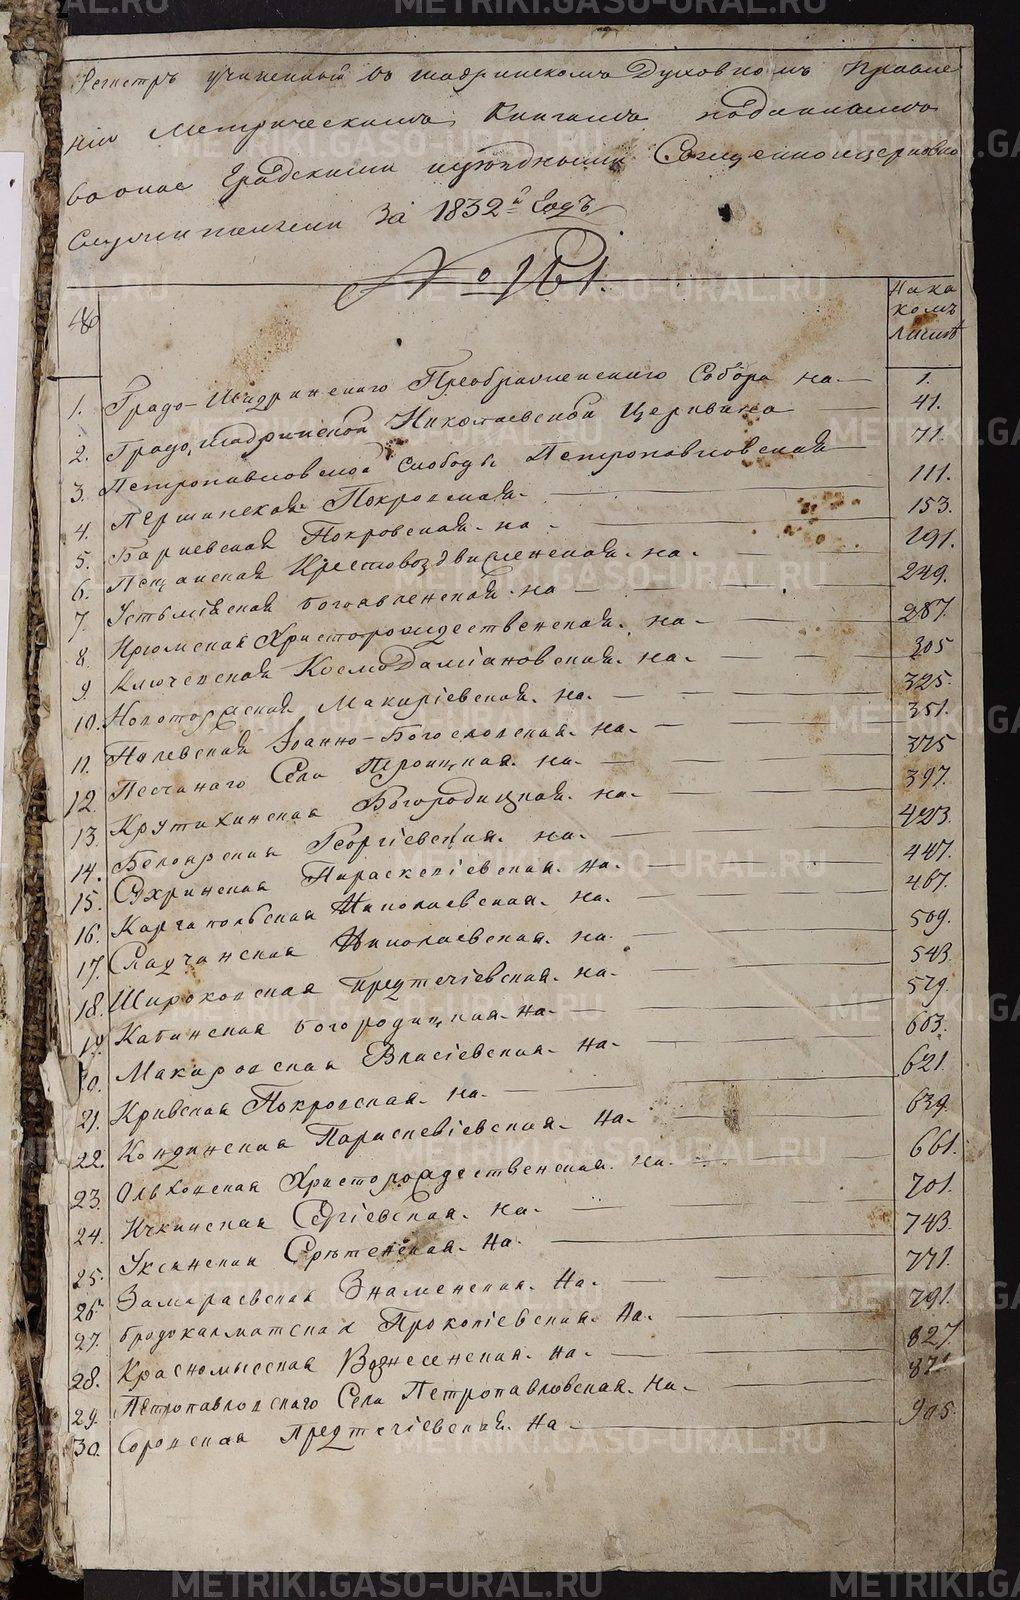 Регистръ учиненный въ Шадринскомъ Духовномъ Правле
ніи Метрическимъ Книгамъ поданнымъ
въ оное Градскими и уѣздными Священноцерковно
Служителями За 1832й Годъ
№ 161.
№
На ка
комъ
Листѣ
1. Градо-Шадринского Преображенского Собора на 1.
2. Градошадринской Николаевской Церкви на 41.
3. Петропавловской Слободы Петропавловская 71.
4. Першинская Покровская 111.
5. Бариевская Покровская на 153.
6. Песчанская Крестовоздвиженская на 191.
7. Устьміяская Богоявленская на 249.
8. Ирюмская Христорождественская на 287.
9. Ключевская КосмоДаміановская на 305
10. Новоторжская Макаріевская на 325.
11. Іоанно-Богословская на 351.
12. Песчаного Села Троицкая на 375
13. Крутихинская Богородицкая на 397.
14. Белоярская Георгіевская на 423.
15. Сухринская Параскевіевская на 447.
16. Каргапольская Николаевская на 467.
17. Николаевская на 509.
18. Широковская Предтечіевская на 543.
19. Кабанская Богородицкая на 579
20. Макаровская Власіевская на 603.
21. Кривская Покровская на 621.
22. Кондинская Параскевіевская на 639.
23. Ольховская Христорождественская на 661.
24. Ичкинская Сергіевская на 701.
25. Уксянская Срѣтенская на 743.
26. Замараевская Знаменская на 771.
27. Бродокалматская Прокопіевская на 791.
28. Красномысская Вознесенская на 827.
29. Петропавловского Села Петропавловская на 871
30. Предтечіевская на 905.
METRIKI.GASO-URAL.RU